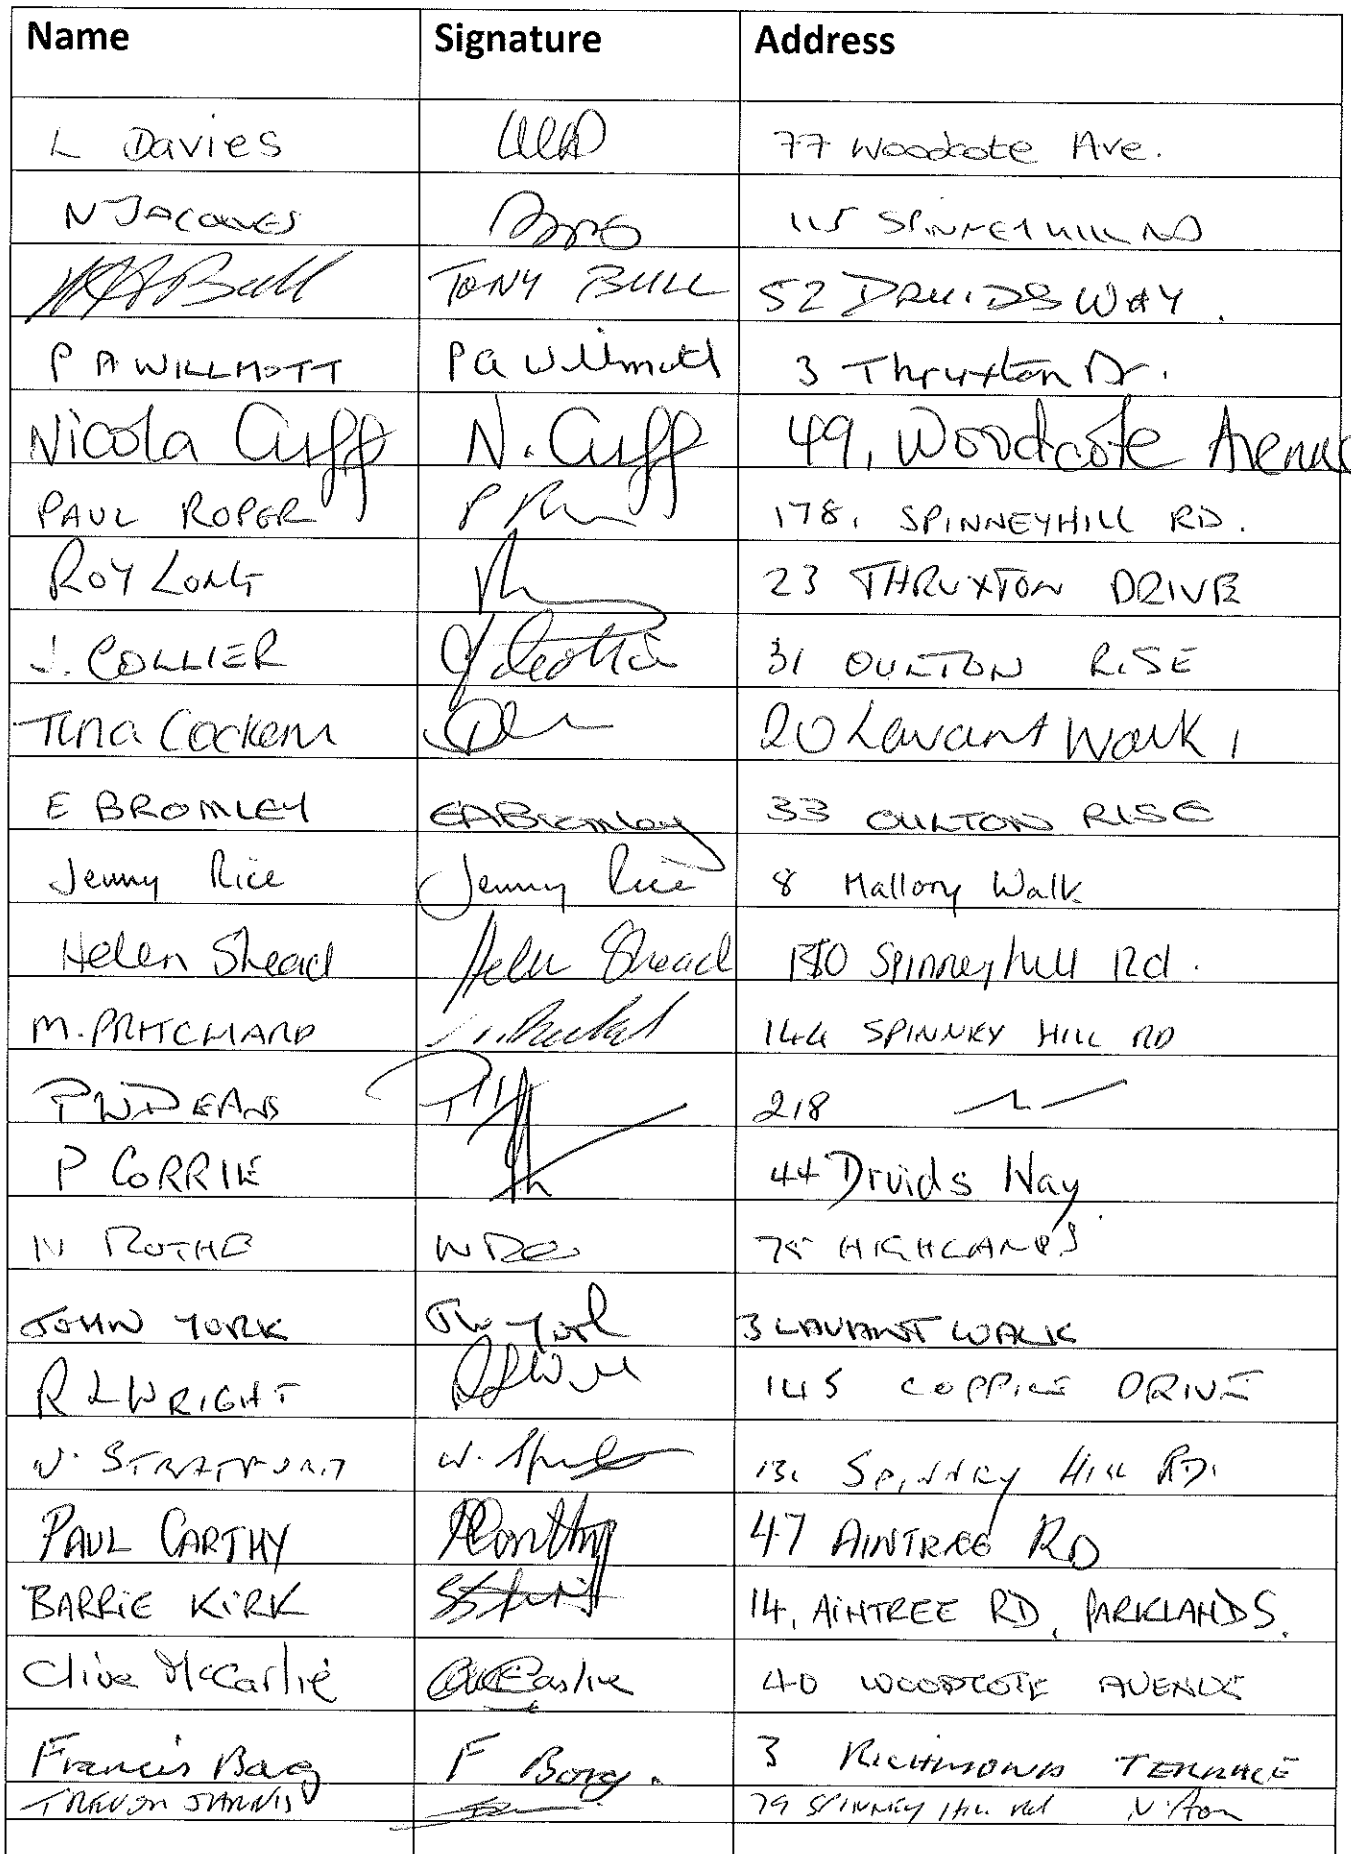 Name Signature Address
L Davies 77 Woodcote Ave.
N JACQUES 115 SPINNEYHILL RD
Bull TONY BULL 52 DRUIDS WAY.
P A WILLMOTT P A Willmott 3 Thruxton Dr.
Nicola Cuff N. Cuff 49, Woodcote Avenue
PAUL ROPER P 178, SPINNEYHILL RD.
ROY LONG 23 THRUXTON DRIVE
J. COLLIER 31 OULTON RISE
Tina Cockem 20 Lavant Walk,
E BROMLEY EABromley 33 OULTON RISE
Jenny Rice Jenny Rice 8 Mallory Walk
Helen Shead Helen Shead Spinneyhill Rd.
M. PRITCHARD 144 SPINNEY HILL RD
P W DEANS 218
P CORRIE 44 Druids Way
N ROTHE 75 HIGHLANDS
JOHN YORK York 3 LAVANT WALK
R L WRIGHT 145 COPPICE DRIVE
STRATFORD 131 SPINNEY HILL RD.
PAUL CARTHY PCarthy 47 AINTREE RD
BARRIE KIRK 14, AINTREE RD, PARKLANDS.
Clive McCarlie McCarlie 40 WOODCOTE AVENUE
Francis Borg F Borg. 3 RICHMOND TERRACE
TREVOR JARVIS 79 SPINNEY HILL Rd N'ton